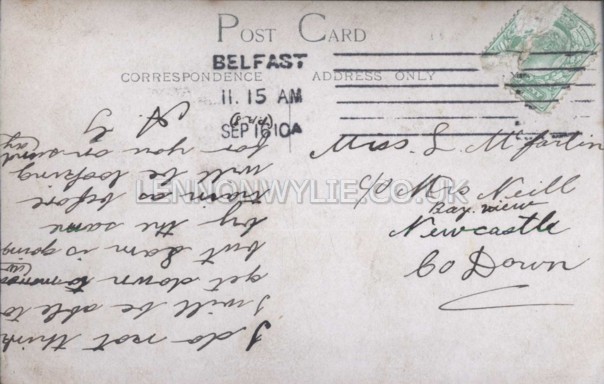 POST CARD
BELFAST
CORRESPONDENCE ADDRESS ONLY
11. 15 AM
SEP 16 10
Miss. L McCartin
C/o Mrs Neill
Bay view
Newcastle
Co Down
I do not think
I will be able to
get down
but Sam is going
by the same
train as before
will be looking
for you on sunday
A. G
LENNONWYLIE.CO.UK